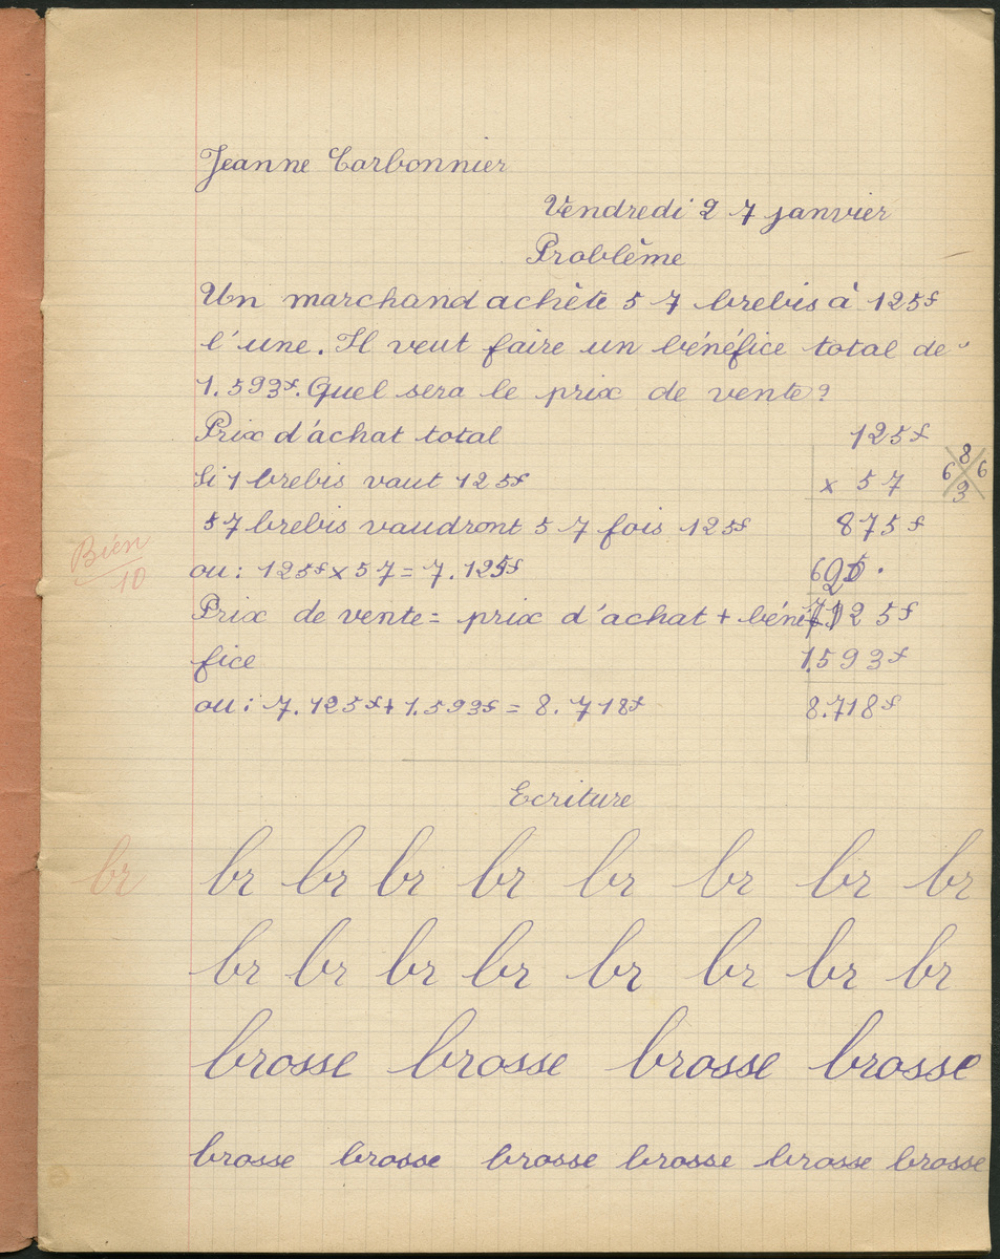 Jeanne Carbonnier
Vendredi 27 janvier
Problème
Un marchand achète 57 brebis à 125f
l'une. Il veut faire un bénéfice total de
1.593f. Quel sera le prix de vente?
Prix d'achat total
Si 1 brebis vaut 125f
57 brebis vaudront 57 fois 125f
ou: 125f x 57 = 7.125f
Prix de vente = prix d'achat + béné
fice
ou: 7.125f + 1.593f = 8.718f
125f
x 57
875f
625.
7.125f
1.593f
8.718f
8
6 6
3
Bien
10
Ecriture
br
br br br br br br br br
br br br br br br br br
brosse brosse brosse brosse
brosse brosse brosse brosse brosse brosse